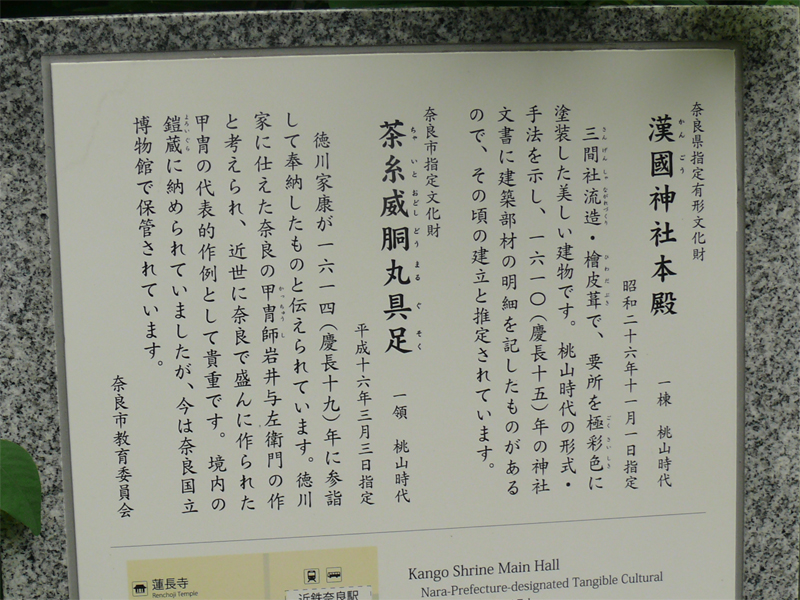 奈良県指定有形文化財
漢國神社本殿 一棟 桃山時代
かんごう
昭和二十六年十一月一日指定
三間社流造・檜皮葺で、要所を極彩色に
さんげんしゃながれづくり ひわだぶき ごくさいしき
塗装した美しい建物です。桃山時代の形式・
手法を示し、一六一〇(慶長十五)年の神社
文書に建築部材の明細を記したものがある
ので、その頃の建立と推定されています。
奈良市指定文化財
茶糸威胴丸具足 一領 桃山時代
ちゃいとおどしどうまるぐそく
平成十六年三月三日指定
徳川家康が一六一四(慶長十九)年に参詣
して奉納したものと伝えられています。徳川
家に仕えた奈良の甲冑師岩井与左衛門の作
かっちゅうし
と考えられ、近世に奈良で盛んに作られた
甲冑の代表的作例として貴重です。境内の
鎧蔵に納められていましたが、今は奈良国立
よろいぐら
博物館で保管されています。
奈良市教育委員会
蓮長寺
Renchoji Temple
近鉄奈良駅
Kango Shrine Main Hall
Nara-Prefecture-designated Tangible Cultural